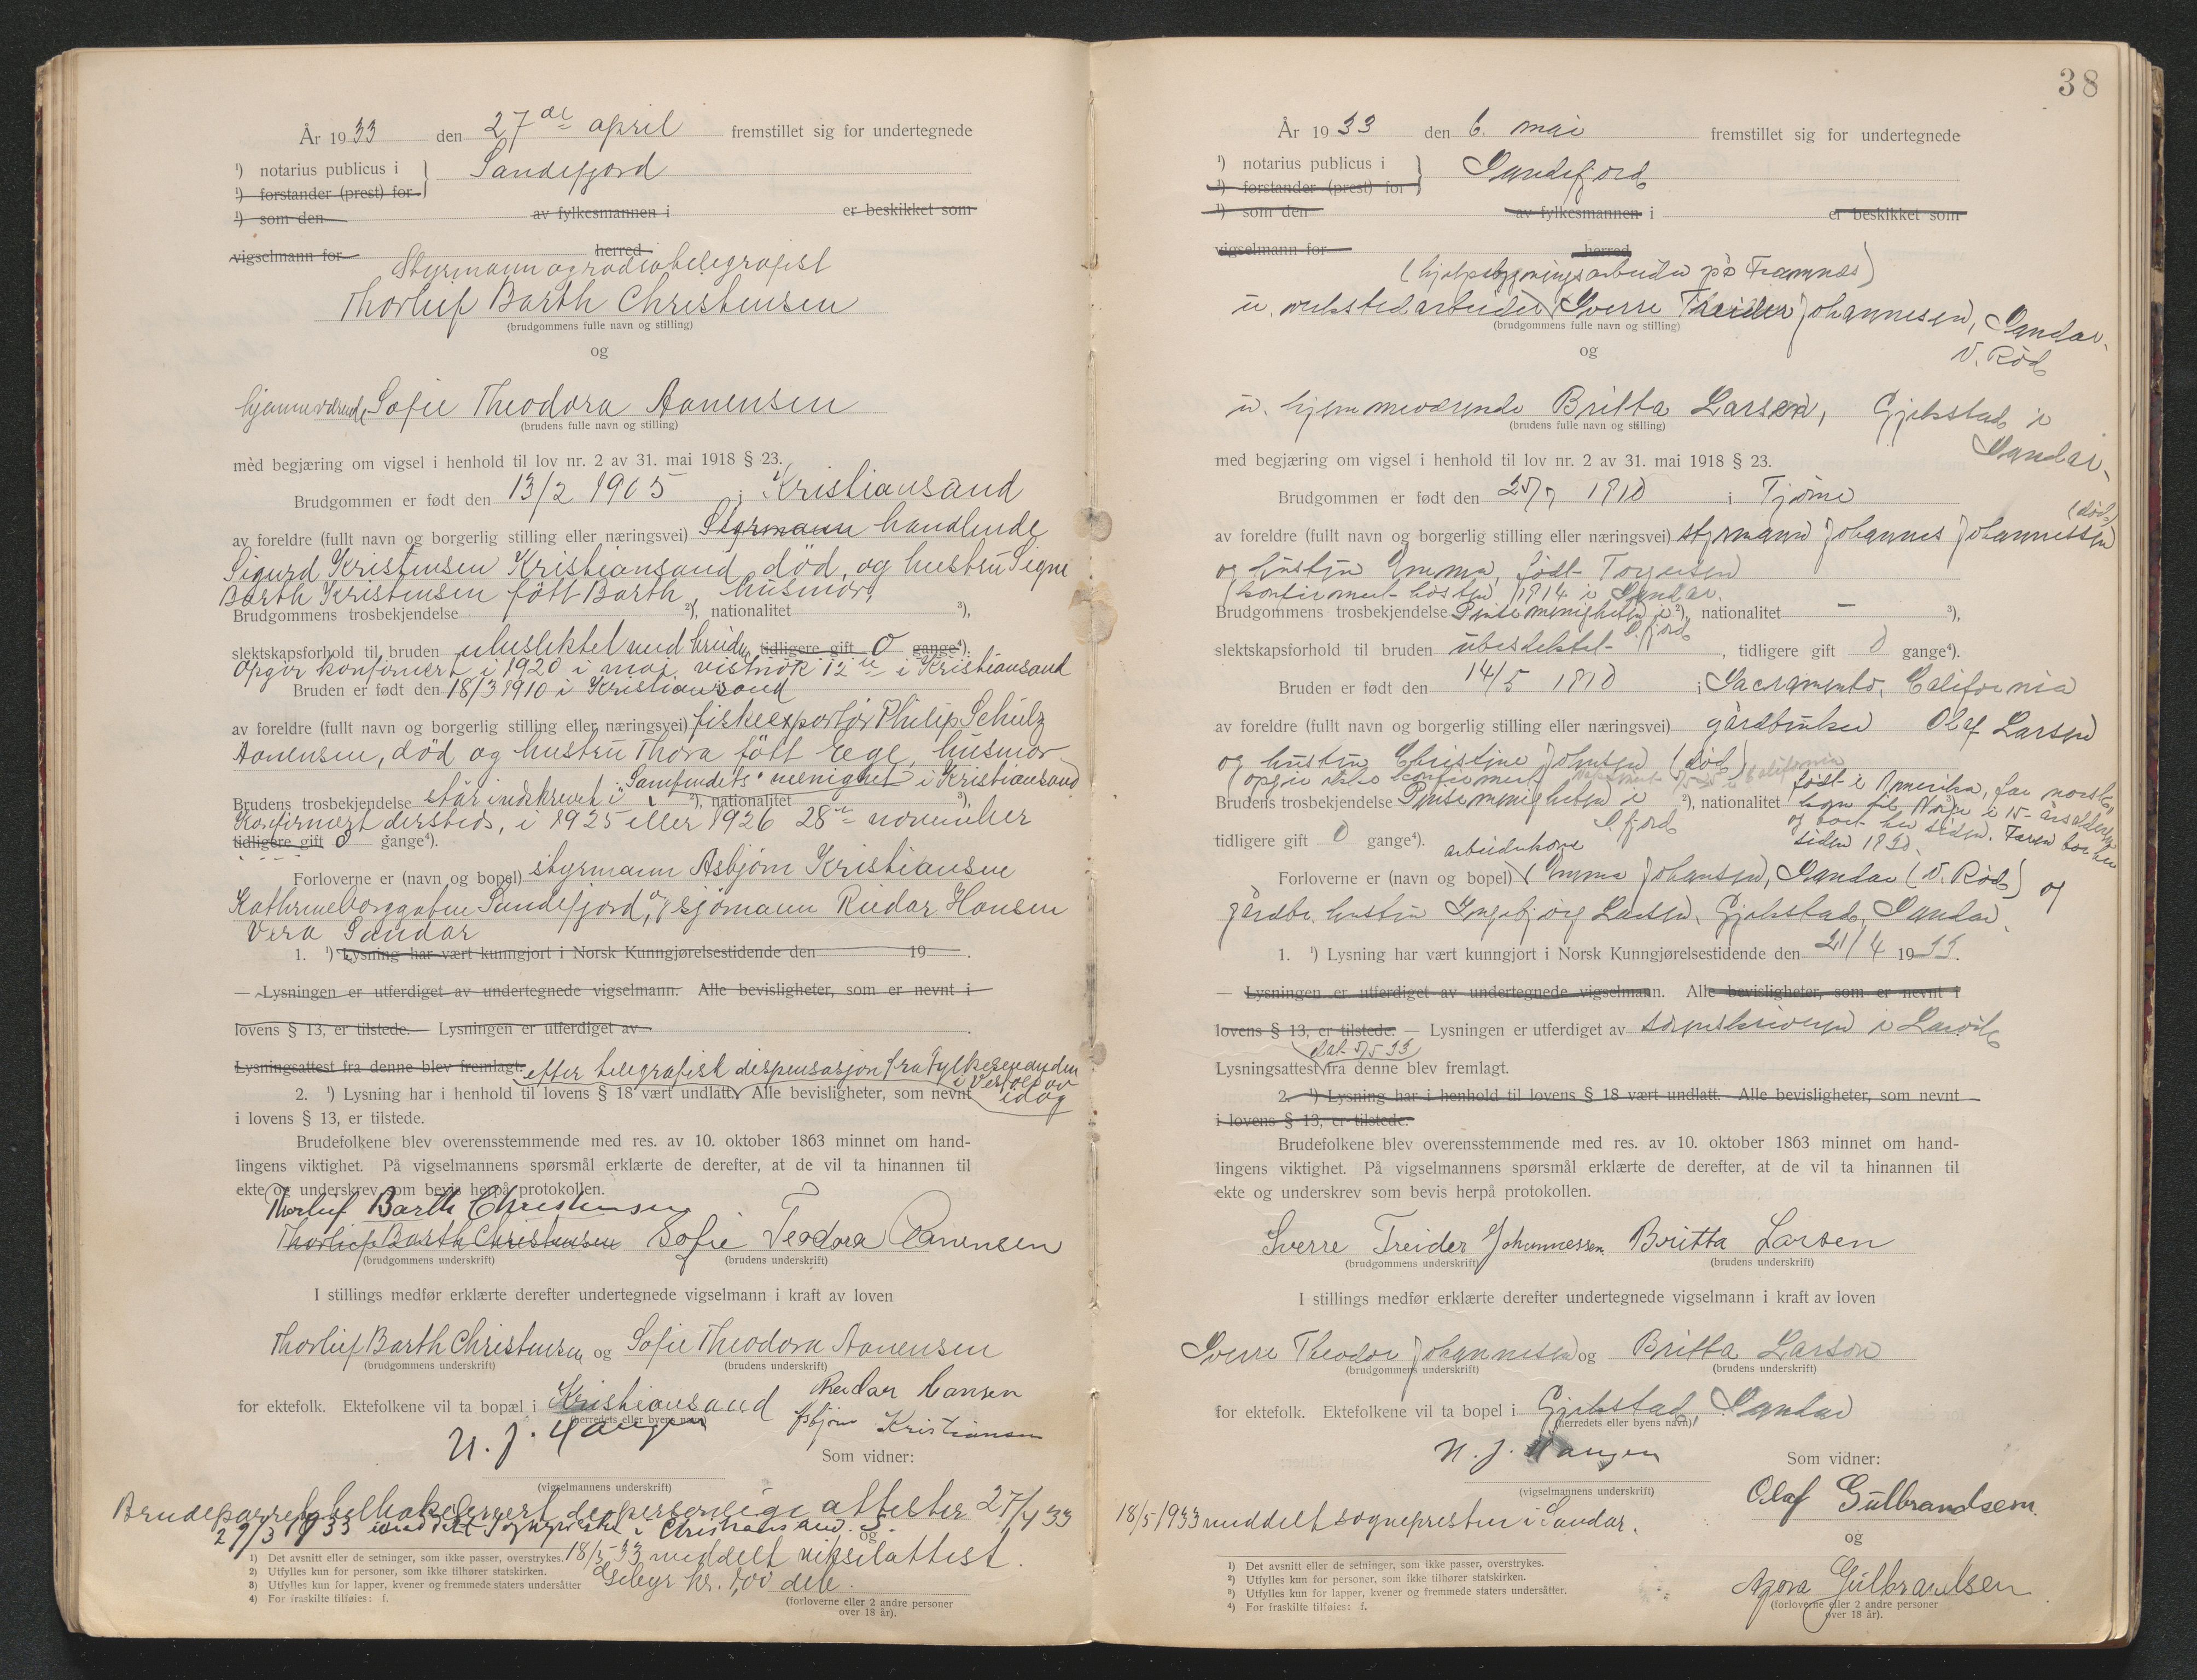 År 1933 den 27de april fremstillet sig for undertegnede
¹) notarius publicus i Sandefjord
¹) forstander (prest) for
¹) som den av fylkesmannen i er beskikket som
vigselmann for herred
Styrmann og radiotelegrafist
Thorleif Barth Christensen
(brudgommens fulle navn og stilling)
og
hjemmeværende Sofie Theodora Aanensen
(brudens fulle navn og stilling)
med begjæring om vigsel i henhold til lov nr. 2 av 31. mai 1918 § 23.
Brudgommen er født den 13/2 1905 i Kristiansand
av foreldre (fullt navn og borgerlig stilling eller næringsvei) Styrmann handlende
Sigurd Kristensen Kristiansand, død, og hustru Signe
Barth Kristensen født Barth, husmor,
Brudgommens trosbekjendelse ²), nationalitet ³),
slektskapsforhold til bruden ubeslektet med bruden tidligere gift 0 gange⁴).
Opgir konfirmert i 1920 i mai vistnok 12te i Kristiansand
Bruden er født den 18/3 1910 i Kristiansand
av foreldre (fullt navn og borgerlig stilling eller næringsvei) fiskeexportør Philip Schulz
Aanensen, død og hustru Thora født Ege, husmor
Brudens trosbekjendelse står indskrevet i "Samfundets" menighet i Kristiansand ²), nationalitet ³),
Konfirmert dersteds, i 1925 eller 1926 28de november
tidligere gift 0 gange⁴).
Forloverne er (navn og bopel) styrmann Asbjørn Kristiansen
Kathrineborggaten Sandefjord, og sjømann Reidar Hansen
Vera Sandar
1. ¹) Lysning har vært kunngjort i Norsk Kunngjørelsestidende den 19 .
— Lysningen er utferdiget av undertegnede vigselmann. Alle bevisligheter, som er nevnt i
lovens § 13, er tilstede. — Lysningen er utferdiget av
Lysningsattest fra denne blev fremlagt. efter telegrafisk dispensasjon fra Fylkesmannen
i Vestfold av
idag
2. ¹) Lysning har i henhold til lovens § 18 vært undlatt. Alle bevisligheter, som nevnt
i lovens § 13, er tilstede.
Brudefolkene blev overensstemmende med res. av 10. oktober 1863 minnet om hand-
lingens viktighet. På vigselmannens spørsmål erklærte de derefter, at de vil ta hinannen til
ekte og underskrev som bevis herpå protokollen.
Thorleif Barth Christensen
Thorleif Barth Christensen Sofie Teodora Aanensen
(brudgommens underskrift) (brudens underskrift)
I stillings medfør erklærte derefter undertegnede vigselmann i kraft av loven
Thorleif Barth Christensen og Sofie Theodora Aanensen
(brudgommens underskrift) (brudens underskrift)
for ektefolk. Ektefolkene vil ta bopæl i Kristiansand
(herredets eller byens navn)
Reidar Hansen
Asbjørn Kristiansen
N. J. Haugen
Som vidner:
(vigselmannens underskrift)
Brudeparret tilbakelevert de personlige attester 27/4 33
29/3 1933 meddelt sogneprsten i Christiansand. S.
og
18/5 33 meddelt vigselattest.
Gebyr kr. 1,00 dete.
1) Det avsnitt eller de setninger, som ikke passer, overstrykes.
2) Utfylles kun for personer, som ikke tilhører statskirken.
3) Utfylles kun for lapper, kvener og fremmede staters undersåtter
4) For fraskilte tilføies: f.
(forloverne eller 2 andre personer
over 18 år).
38
År 1933 den 6. mai fremstillet sig for undertegnede
¹) notarius publicus i Sandefjord
¹) forstander (prest) for
¹) som den av fylkesmannen i er beskikket som
vigselmann for herred
(hjelpebygningsarbeider på Framnæs)
u. verkstedarbeider Sverre Treider Johannesen, Sandar,
(brudgommens fulle navn og stilling)
V. Rød
og
u. hjemmeværende Britta Larsen, Gjekstad i
Sandar,
(brudens fulle navn og stilling)
med begjæring om vigsel i henhold til lov nr. 2 av 31. mai 1918 § 23.
Brudgommen er født den 25/7 1910 i Tjøme
av foreldre (fullt navn og borgerlig stilling eller næringsvei) styrmann Johannes Johannessen (død)
og hustru Emma, født Torgersen
(konfirmert høsten 1914 i Sandar.
Brudgommens trosbekjendelse Pinsemenigheten i S.fjord ²), nationalitet — ³),
slektskapsforhold til bruden ubeslektet , tidligere gift 0 gange⁴).
Bruden er født den 14/5 1910 i Sacramento, California
av foreldre (fullt navn og borgerlig stilling eller næringsvei) gårdbruker Olaf Larsen
og hustru Christine Johnsen (død)
(opgir ikke konfirmert
Brudens trosbekjendelse Pinsemenigheten i S.fjord ²), nationalitet født i Amerika, far norsk,
kom til Norge i 15-årsalderen
og bodd her siden. Faren bor her
siden 1920.
tidligere gift 0 gange⁴).
arbeiderkone
Forloverne er (navn og bopel) Emma Johansen, Sandar (V. Rød) og
gårdbr. hustru Ingebjørg Larsen, Gjekstad, Sandar.
1. ¹) Lysning har vært kunngjort i Norsk Kunngjørelsestidende den 21/4 1933.
— Lysningen er utferdiget av undertegnede vigselmann. Alle bevisligheter, som er nevnt i
lovens § 13, er tilstede. — Lysningen er utferdiget av sorenskriveren i Larvik
dat. 5/5 33
Lysningsattest fra denne blev fremlagt.
2. ¹) Lysning har i henhold til lovens § 18 vært undlatt. Alle bevisligheter, som nevnt
i lovens § 13, er tilstede.
Brudefolkene blev overensstemmende med res. av 10. oktober 1863 minnet om hand-
lingens viktighet. På vigselmannens spørsmål erklærte de derefter, at de vil ta hinannen til
ekte og underskrev som bevis herpå protokollen.
Sverre Treider Johannessen Britta Larsen
(brudgommens underskrift) (brudens underskrift)
I stillings medfør erklærte derefter undertegnede vigselmann i kraft av loven
Sverre Theodor Johannesen og Britta Larsen
(brudgommens underskrift) (brudens underskrift)
for ektefolk. Ektefolkene vil ta bopel i Gjekstad, Sandar
(herredets eller byens navn)
N. J. Haugen
Som vidner:
(vigselmannens underskrift)
Olaf Gulbrandsen.
18/5 1933 meddelt sognepresten i Sandar.
og
Agora Gulbrandsen
1) Det avsnitt eller de setninger, som ikke passer, overstrykes.
2) Utfylles kun for personer, som ikke tilhører statskirken.
3) Utfylles kun for lapper, kvener og fremmede staters undersåtter.
4) For fraskilte tilføies: f.
(forloverne eller 2 andre personer
over 18 år).